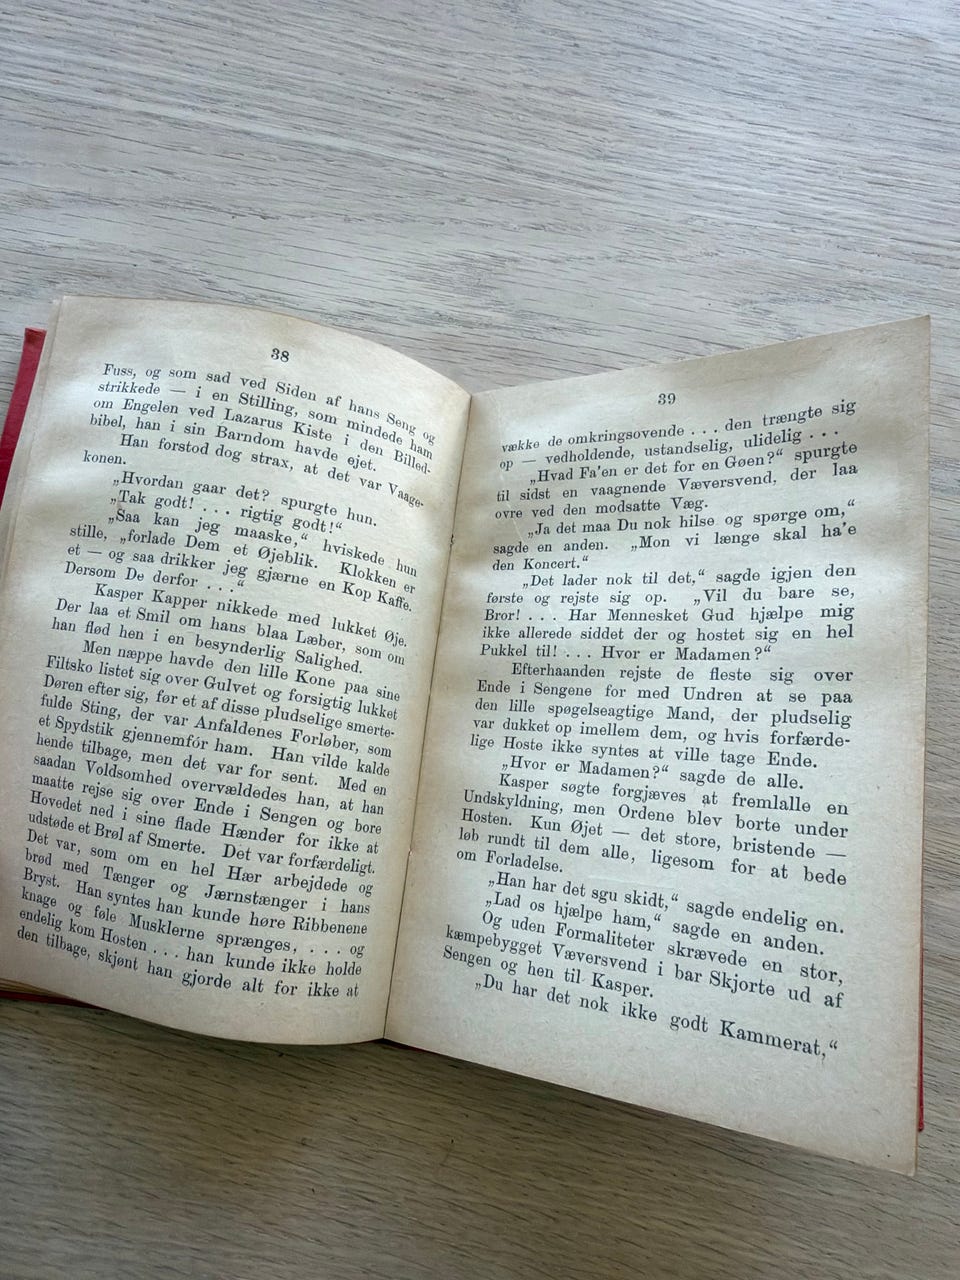 38
Fuss, og som sad ved Siden af hans Seng og
strikkede — i en Stilling, som mindede ham
om Engelen ved Lazarus Kiste i den Billed-
bibel, han i sin Barndom havde ejet.
Han forstod dog strax, at det var Vaage-
konen.
„Hvordan gaar det? spurgte hun.
„Tak godt! . . . rigtig godt!“
„Saa kan jeg maaske,“ hviskede hun
stille, „forlade Dem et Øjeblik. Klokken er
et — og saa drikker jeg gjærne en Kop Kaffe.
Dersom De derfor . . .“
Kasper Kapper nikkede med lukket Øje.
Der laa et Smil om hans blaa Læber, som om
han flød hen i en besynderlig Salighed.
Men næppe havde den lille Kone paa sine
Filtsko listet sig over Gulvet og forsigtig lukket
Døren efter sig, før et af disse pludselige smerte-
fulde Sting, der var Anfaldenes Forløber, som
et Spydstik gjennemfór ham. Han vilde kalde
hende tilbage, men det var for sent. Med en
saadan Voldsomhed overvældedes han, at han
maatte rejse sig over Ende i Sengen og bore
Hovedet ned i sine flade Hænder for ikke at
udstøde et Brøl af Smerte. Det var forfærdeligt.
Det var, som om en hel Hær arbejdede og
brød med Tænger og Jærnstænger i hans
Bryst. Han syntes han kunde høre Ribbenene
knage og føle Musklerne sprænges, . . . og
endelig kom Hosten . . . han kunde ikke holde
den tilbage, skjønt han gjorde alt for ikke at
39
vække de omkringsovende . . . den trængte sig
op — vedholdende, ustandselig, ulidelig . . .
„Hvad Fa'en er det for en Gøen?“ spurgte
til sidst en vaagnende Væversvend, der laa
ovre ved den modsatte Væg.
„Ja det maa Du nok hilse og spørge om,“
sagde en anden. „Mon vi længe skal ha'e
den Koncert.“
„Det lader nok til det,“ sagde igjen den
første og rejste sig op. „Vil du bare se,
Bror! . . . Har Mennesket Gud hjælpe mig
ikke allerede siddet der og hostet sig en hel
Pukkel til! . . . Hvor er Madamen?“
Efterhaanden rejste de fleste sig over
Ende i Sengene for med Undren at se paa
den lille spøgelseagtige Mand, der pludselig
var dukket op imellem dem, og hvis forfærde-
lige Hoste ikke syntes at ville tage Ende.
„Hvor er Madamen?“ sagde de alle.
Kasper søgte forgjæves at fremlalle en
Undskyldning, men Ordene blev borte under
Hosten. Kun Øjet — det store, bristende —
løb rundt til dem alle, ligesom for at bede
om Forladelse.
„Han har det sgu skidt,“ sagde endelig en.
„Lad os hjælpe ham,“ sagde en anden.
Og uden Formaliteter skrævede en stor,
kæmpebygget Væversvend i bar Skjorte ud af
Sengen og hen til Kasper.
„Du har det nok ikke godt Kammerat,“